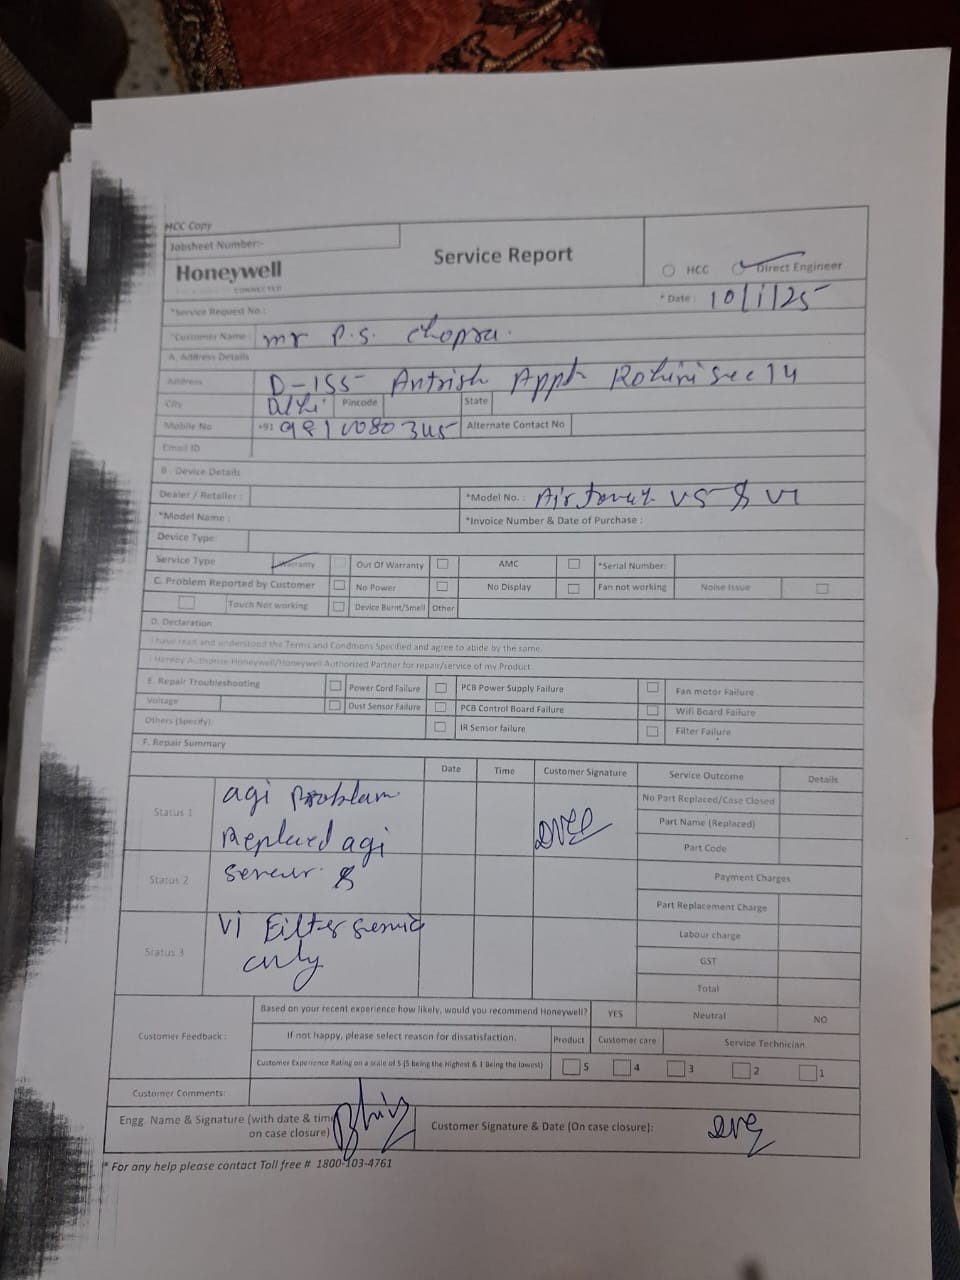 HCC Copy
Jobsheet Number:-
Honeywell
CONNECTED
Service Report
HCC Direct Engineer
* Date : 10/1/25
*Service Request No :
*Customer Name : mr P.S. Chopra.
A. Address Details
Address D-155 Antrish Appt Rohini sec 14
City Delhi Pincode State
Mobile No +91 Alternate Contact No
Email ID
B . Device Details
Dealer / Retailer : *Model No. : Air V5 & V1
*Model Name : *Invoice Number & Date of Purchase :
Device Type:
Service Type Warranty Out Of Warranty AMC *Serial Number:
C. Problem Reported by Customer No Power No Display Fan not working Noise Issue
Touch Not working Device Burnt/Smell Other
D. Declaration
I have read and understood the Terms and Conditions Specified and agree to abide by the same.
I Hereby Authorize Honeywell/Honeywell Authorized Partner for repair/service of my Product.
E. Repair Troubleshooting Power Cord Failure PCB Power Supply Failure Fan motor Failure
Voltage Dust Sensor Failure PCB Control Board Failure Wifi Board Failure
Others (Specify): IR Sensor failure Filter Failure
F. Repair Summary
Date Time Customer Signature Service Outcome Details
Status 1 aqi Problam
Replaced aqi
No Part Replaced/Case Closed
Part Name (Replaced)
Part Code
Status 2 &
Payment Charges
Part Replacement Charge
Status 3 V1 Filter service
only
Labour charge
GST
Total
Customer Feedback :
Based on your recent experience how likely, would you recommend Honeywell? YES Neutral NO
If not happy, please select reason for dissatisfaction. Product Customer care Service Technician
Customer Experience Rating on a scale of 5 (5 being the highest & 1 Being the lowest) 5 4 3 2 1
Customer Comments:
Engg Name & Signature (with date & time
on case closure)
Customer Signature & Date (On case closure):
* For any help please contact Toll free # 1800-103-4761